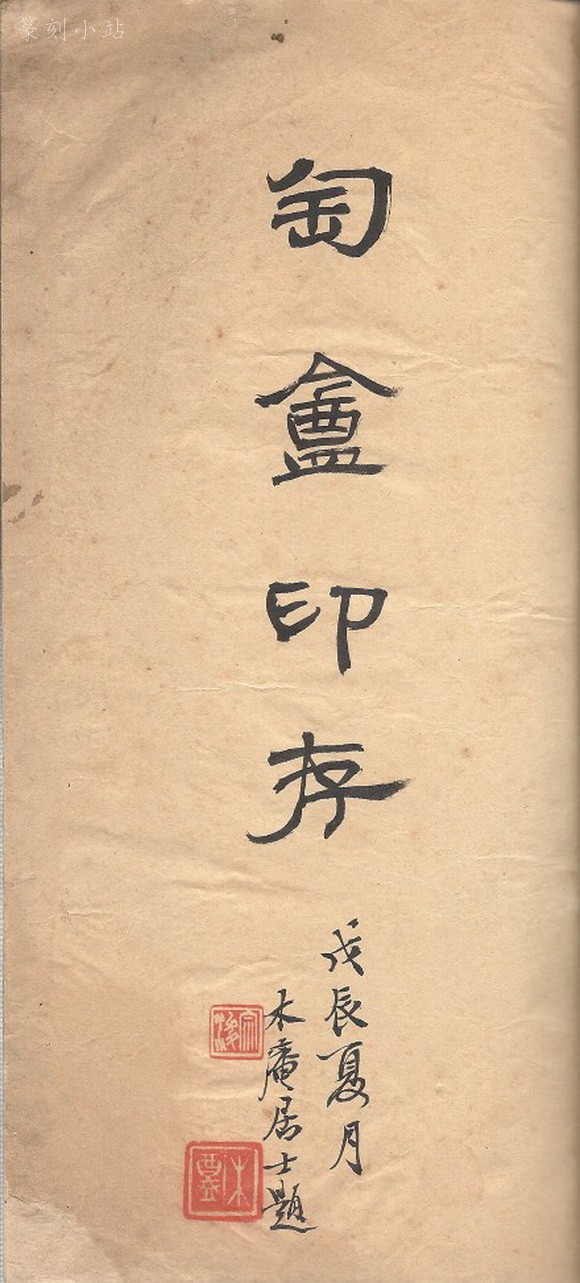 篆刻小站
匋盦印存
戊辰夏月
木庵居士題